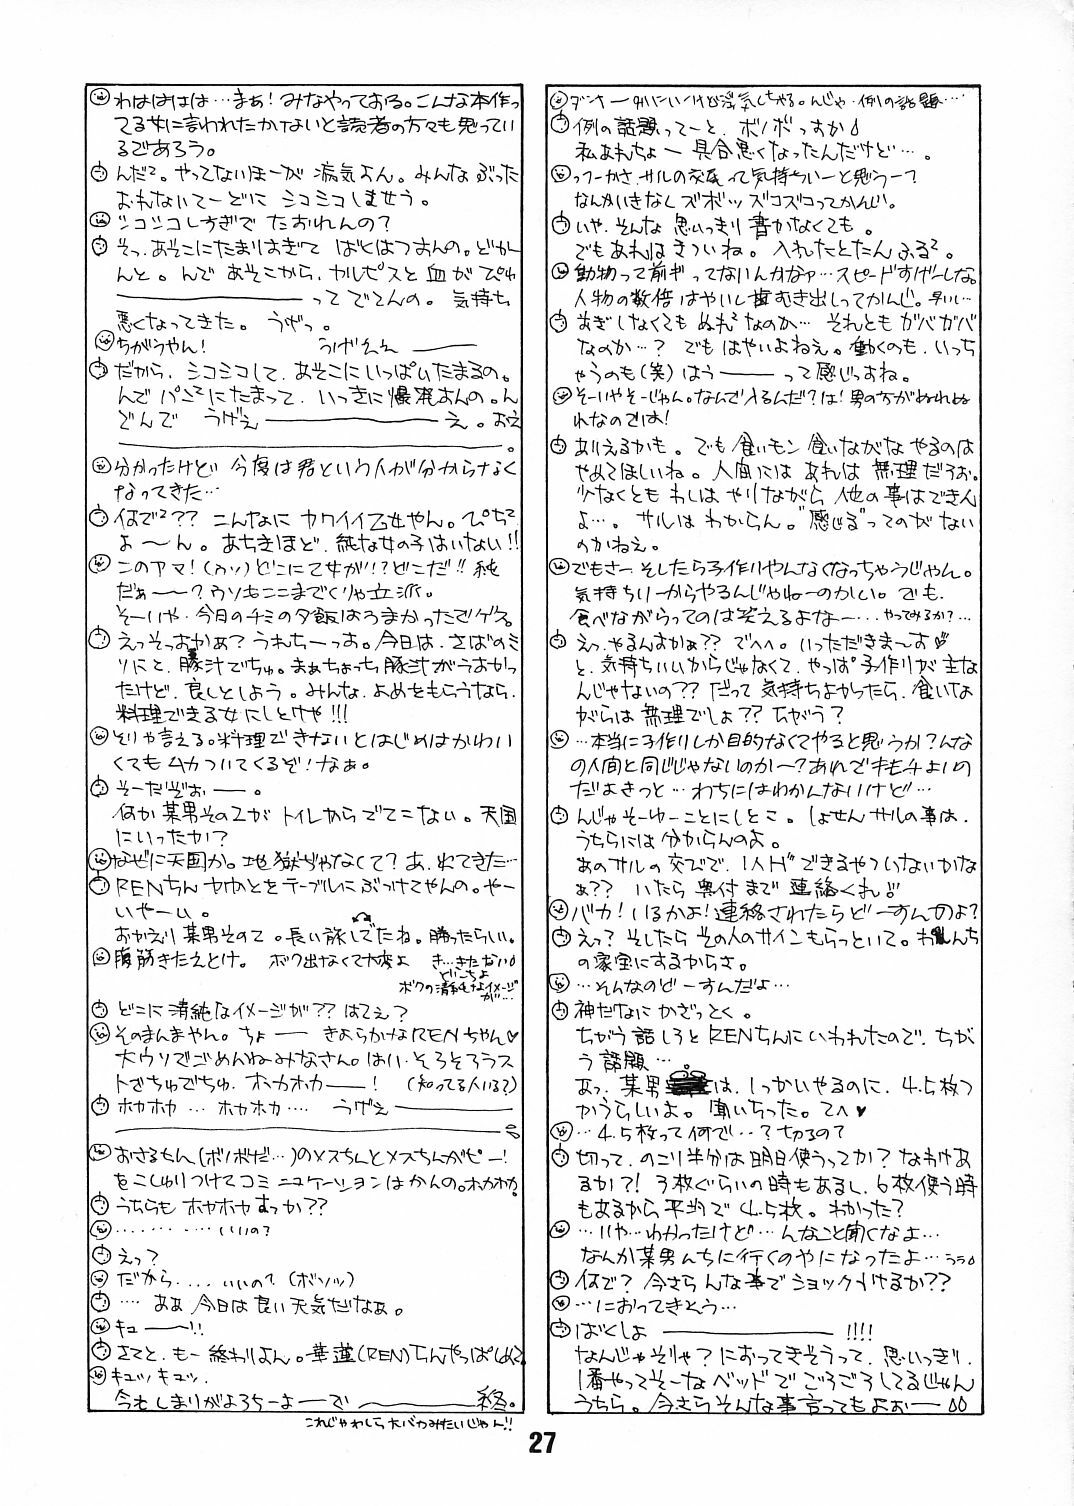 ダンナー外にいくけど浮気しちゃる。んじゃ例の話題…
例の話題ってーと、ボノボっすか
私あれちょー具合悪くなったんだけど…。
つーかさ、サルの交尾って気持ちいーと思うー?
なんかいきなしズボッズコズコってかんじ。
いや、そんな思いっきり書かなくても。
でもあれはきついね。入れたとたんふる²。
動物って前ギってないんかなァ…スピードすげーしな。
人物の数倍はやいし歯むき出しってかんじ。早いし…
あぎしなくてもぬれ²なのか… それともガバガバ
なのか…? でもはやいよねぇ。働くのも、いっち
ゃうのも(笑)はうーーって感じっすね。
そーいやそーじゃん。なんで入るんだ?は!男の方がぬれぬ
れなのでは!
ありえるかも。でも食いモン食いながなやるのは
やめてほしいね。人間にはあれは無理だろお。
少なくともわしはやりながら他の事はできん
よ…。サルはわからん。"感じる"ってのがない
のかねえ。
でもさー、そしたら子作りやんなくなっちゃうじゃん。
気持ちいーからやるんじゃねーのかい。でも、
食べながらってのは笑えるよなー…やってみるか?…
えっ、やるんすかぁ?? でへへ。いっただきまーす♡
と、気持ちいいからじゃなくて、やっぱ子作りが主な
んじゃないの?? だって気持ちよかったら、食いな
がらは無理でしょ?? ちがう?
…本当に子作りしか目的なくてやると思うか?んな
の人間と同じじゃないのか〜?あれでキモチよいの
だよきっと…わちにはわかんないけど…
んじゃそーゆーことにしとこ。しょせんサルの事は、
うちらには分からんのよ。
あのサルの交びで、1人Hできるやついないかな
ぁ?? いたら奥付まで連絡くれ!!
バカ!いるかよ!連絡されたらどーすんのよ?
えっ?そしたらその人のサインもらっといて。わんち
の家宝にするからさ。
…そんなのどーすんだよ…
神だなにかざっとく。
ちがう話しろとRENちんにいわれたので、ちが
う話題…
あっ、某男は、1っかいやるのに、4.5枚つ
かうらしいよ。聞いちった。てへ♥
…4.5枚って何で…?切るの?
切って、のこり半分は明日使うってか? なわけあ
るか?! 3枚ぐらいの時もあるし、6枚使う時
もあるから平均で4.5枚。わかった?
…いや…わかったけど…んなこと聞くなよ…
なんか某男んちに行くのやになったよ…うらら
何で? 今さらんな事でショックうけるか??
…におってきそう…
ばくしょーーー!!!!
なんじゃそりゃ? におってきそうって、思いっきり、
1番やってそーなベッドでごろごろしてるじゃん
うちら。今さらそんな事言ってもよぉーー
わはははは…まぁ!みなやっておる。こんな本作っ
てる女に言われたかないと読者の方々も思ってい
るであろう。
んだ²。やってないほーが病気よん。みんなぶった
おれないてーどにシコシコしませう。
シコシコしすぎでたおれんの?
そっ、あそこにたまりすぎてばくはつすんの。どかー
んと。んであそこから、カルピスと血がぴゅ
ーーーーってでてんの。気持ち
悪くなってきた。うげっ。
ちがうやん! うげええーー
だから、シコシコして、あそこにいっぱいたまるの。
んでパン²にたまって、いっきに爆発すんの。ん
どんで うげえーーーえ。おえ
ーーーーーーーー。
分かったけど今度は君という人が分からなく
なってきた…
何で²?? こんなにカワイイ乙女やん。ぴち²
よ〜ん。あちきほど、純な女の子はいない!!
このアマ!(ウソ)どこに乙女が!?どこだ!!純
だぁ〜?ウソもここまでくりゃ立派。
そーいや、今日のチミの夕飯はうまかったでゲス。
えっそっすかぁ?うれちーっす。今日は、さばのミ
ソにと、豚汁でちゅ。まぁちょっち豚汁がうすかっ
たけど、良しとしよう。みんな、よめをもらうなら、
料理できる女にしとけや!!!
そりゃ言える。料理できないとはじめはかわい
くてもムカついてくるぞ!なぁ。
そーだぞぉーー。
何か某男その2がトイレからでてこない。天国
にいったか?
なぜに天国か。地獄ぢゃなくて?あ、れてきた…
RENちんヤカンとをテーブルにぶつけてやんの。やー
いやーい。
おかえり某男その2。長い旅してたね。勝ったらしい。
腹筋きたえとけ。 ボク出なくて大変よ き…きたない
どこちよ
ボクの清純なイメージ
が…
どこに清純なイメージが?? はてえ?
そのまんまやん。ちょーー きよらかなRENちゃん♥
大ウソでごめんねみなさん。はい、そろそろラス
トでちゅでちゅ、ホカホカーー! (知ってる人いる?)
ホカホカ… ホカホカ… うげえーーーー
おさるちん(ボノボだ…)のメスちんとメスちんがピー!
をこしゅりつけてコミュニケーションはかんの。ホカホカ。
うちらもホカホカすっか??
………… いいの?
えっ?
だから…… いいの? (ボソッ)
… ああ今日は良い天気だなぁ。
キューー!!
さてと、もー終わりよん。華蓮(REN)ちんやっぱしめ²
キュッキュッ、
今もしまりがよろちーよーーでーーー終。
これじゃわしら大バカみたいじゃん!!
27